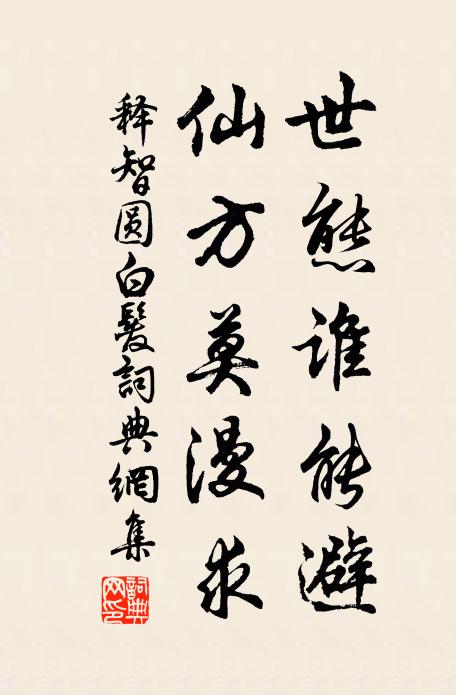 世態誰能避
仙方莫漫求
释智圆白髮詞典網集
詞典网印